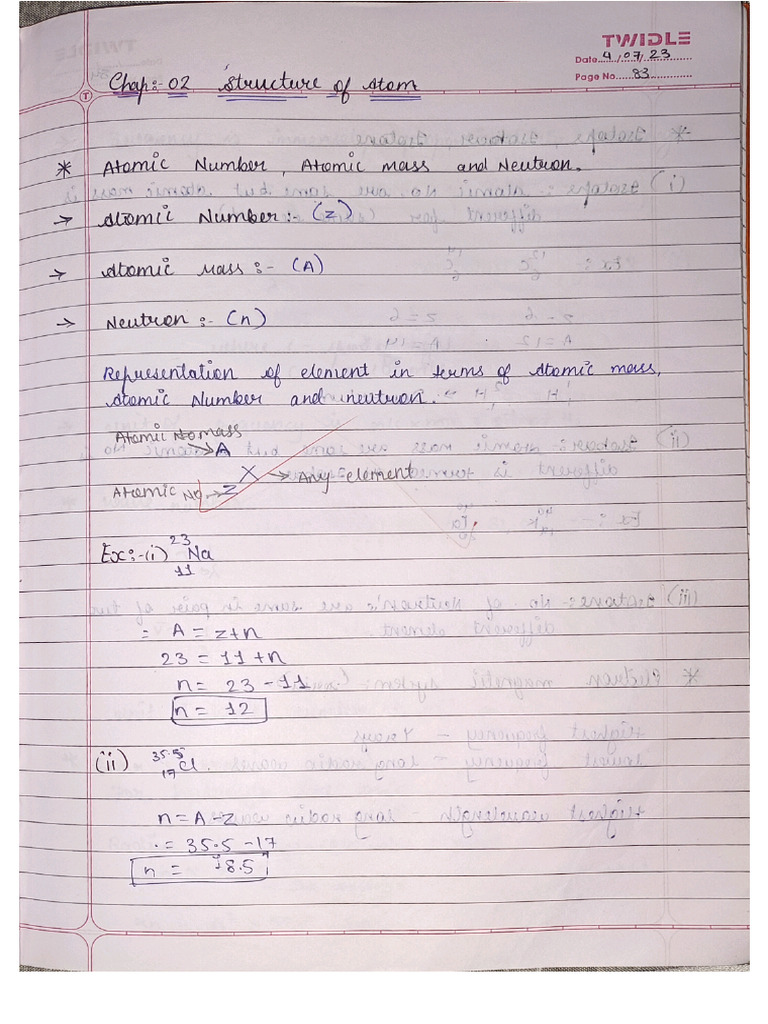 TWIDLE
Date 4, 07, 23
Page No. 83
Chap:- 02 Structure of Atom
* Atomic Number, Atomic mass and Neutron.
→ Atomic Number:- (z)
→ Atomic Mass:- (A)
→ Neutron:- (n)
Representation of element in terms of Atomic mass,
Atomic Number and neutron.
Atomic mass
→ A
X → Any element
Atomic No → Z
Ex:-(i) ²³₁₁Na
= A = z+n
23 = 11+n
n = 23-11
n = 12
(ii) ³⁵·⁵₁₇Cl.
n = A-z
= 35.5 - 17
n = 18.5